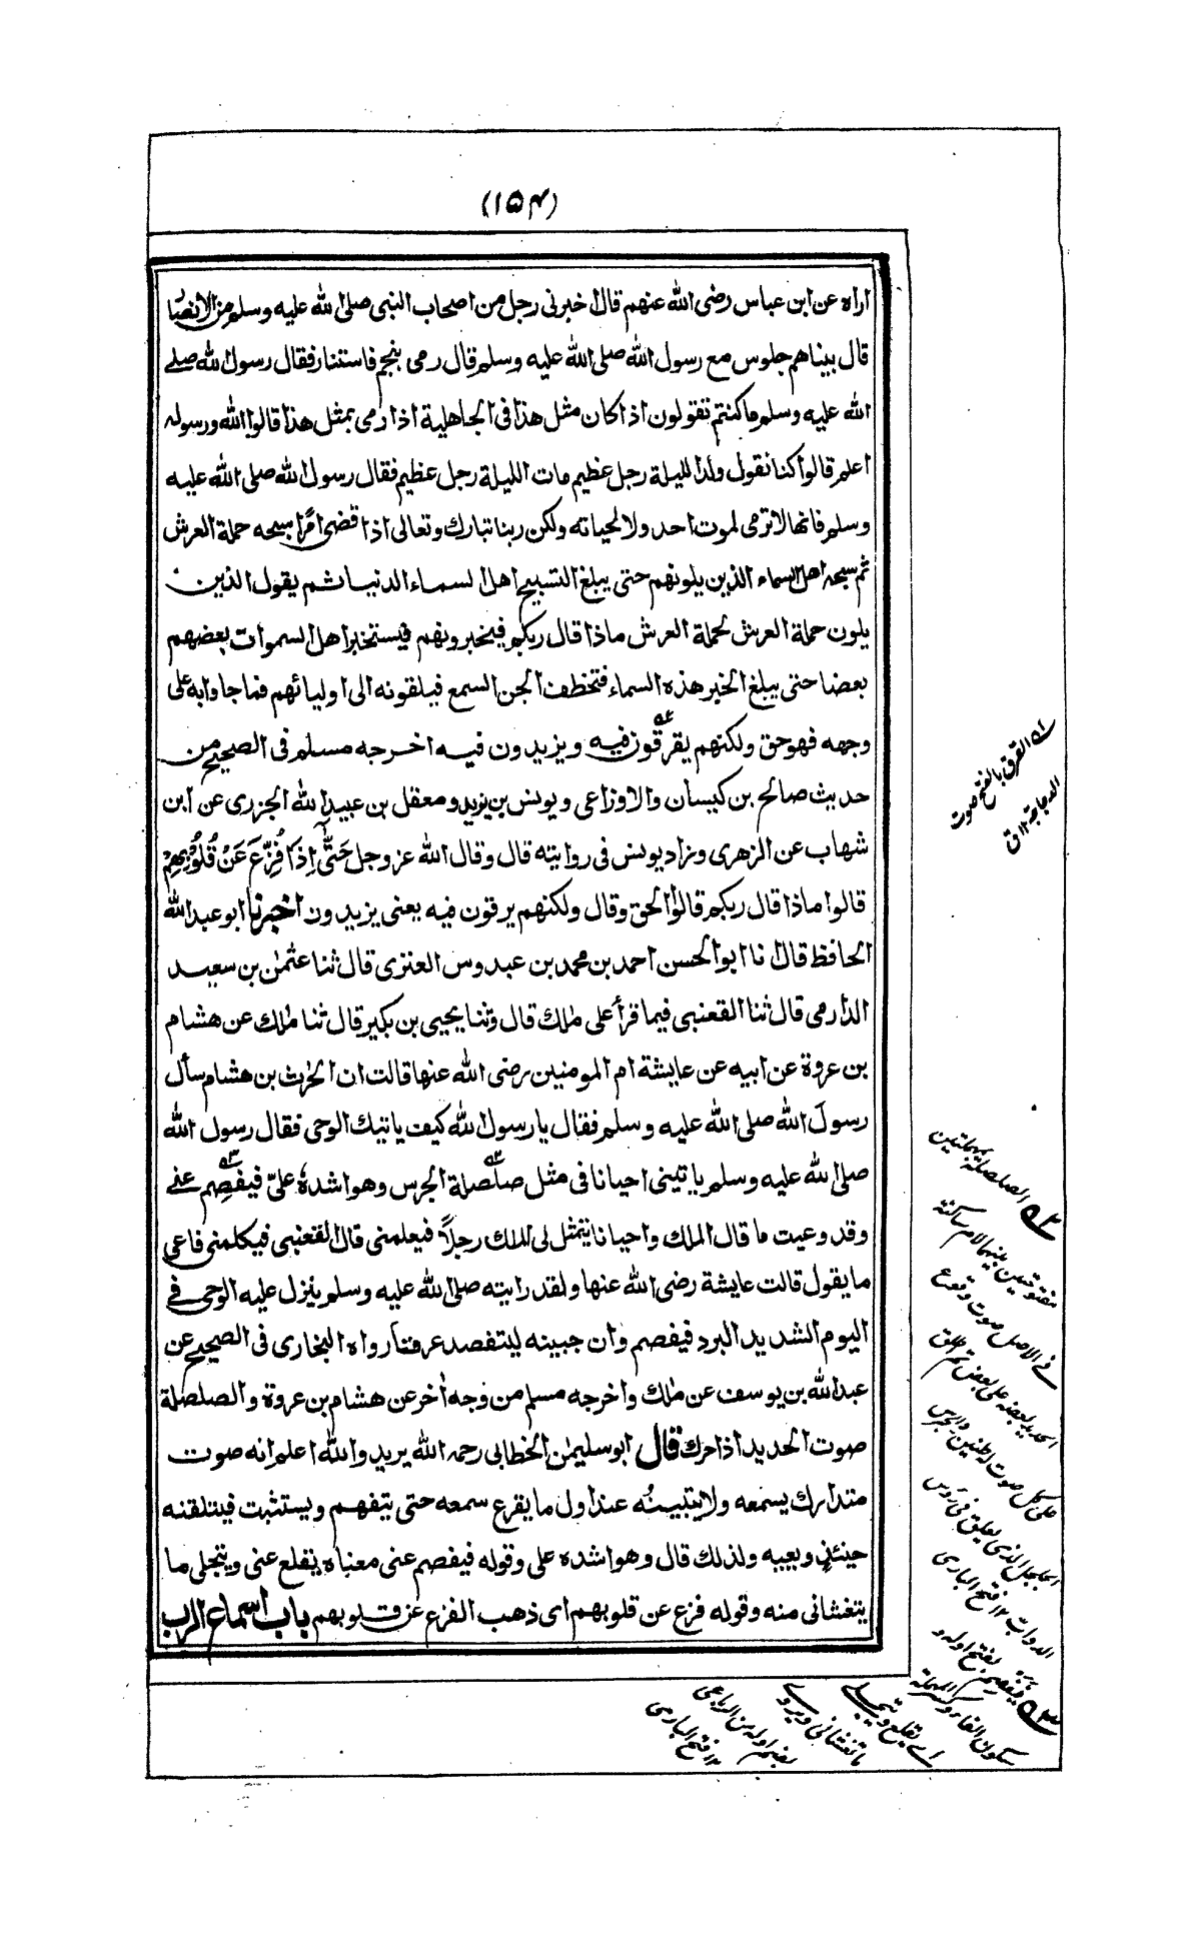 (١٥٤)
اراه عن ابن عباس رضی الله عنهم قال اخبرنی رجل من اصحاب النبی صلی الله علیه وسلم من الانصا
قال بیناهم جلوس مع رسول الله صلی الله علیه وسلم قال رمی بنجم فاستنار فقال رسول الله صلے
الله علیه وسلم ما کنتم تقولون اذا کان مثل هذا فی الجاهلیة اذا رمی بمثل هذا قالوا الله ورسوله
اعلم قالوا کنا نقول ولد اللیلة رجل عظیم مات اللیلة رجل عظیم فقال رسول الله صلی الله علیه
وسلم فانها لا ترمی لموت احد ولا لحیاته ولکن ربنا تبارک وتعالی اذا قضی امرًا سبحه حملة العرش
ثم سبحه اهل السماء الذین یلونهم حتی یبلغ التسبیح اهل السماء الدنیا ثم یقول الذین
یلون حملة العرش لحملة العرش ماذا قال ربکم فیخبرونهم فیستخبر اهل السموات بعضهم
بعضا حتی یبلغ الخبر هذه السماء فتخطف الجن السمع فیلقونه الی اولیائهم فما جاوا به علی
وجهه فهو حق ولکنهم یقرقون فیه ویزیدون فیه اخرجه مسلم فی الصحیح من
حدیث صالح بن کیسان والاوزاعی ویونس بن یزید ومعقل بن عبید الله الجزری عن ابن
شهاب عن الزهری وزاد یونس فی روایته قال وقال الله عز وجل حَتّٰی اِذَا فُزِّعَ عَنْ قُلُوْبِهِمْ
قالوا ماذا قال ربکم قالوا الحق وقال ولکنهم یرقون فیه یعنی یزیدون اخبرنا ابو عبد الله
الحافظ قال نا ابو الحسن احمد بن محمد بن عبدوس العنزی قال ثنا عثمٰن بن سعید
الدارمی قال ثنا القعنبی فیما قرأ علی مٰلک قال وثنا یحیی بن بکیر قال ثنا مٰلک عن هشام
بن عروة عن ابیه عن عایشة ام المومنین رضی الله عنها قالت ان الحٰرث بن هشام سأل
رسول الله صلی الله علیه وسلم فقال یا رسول الله کیف یاتیک الوحی فقال رسول الله
صلی الله علیه وسلم یاتینی احیانا فی مثل صلصلة الجرس وهو اشده علیّ فیفصم عنے
وقد وعیت ما قال الملک واحیانا یتمثل لی الملک رجلاً فیعلمنی قال القعنبی فیکلمنی فاعی
ما یقول قالت عایشة رضی الله عنها ولقد رایته صلی الله علیه وسلم ینزل علیه الوحی فے
الیوم الشدید البرد فیفصم وان جبینه لیتفصد عرقا رواه البخاری فی الصحیح عن
عبد الله بن یوسف عن مٰلک واخرجه مسلم من وجه اٰخر عن هشام بن عروة والصلصلة
صوت الحدید اذا حرک قال ابو سلیمٰن الخطابی رحمه الله یرید والله اعلم انه صوت
متدارک یسمعه ولا یتبینُه عند اول ما یقرع سمعه حتی یتفهم ویستثبت فیتلقنه
حینئذٍ ویعیه ولذلک قال وهو اشده علی وقوله فیفصم عنی معناه یقلع عنی ویتجلی ما
یتغشانی منه وقوله فزع عن قلوبهم ای ذهب الفزع عن قلوبهم باب اسماع الرب
؎۱ القرق بالفتح صوت
الدجاجة ۱۲ ق
؎۲ الصلصلة بمهملتین
مفتوحتین بینهما لام ساکنة
فے الاصل صوت وقوع
الحدید بعضه علی بعض ثم اطلق
علی کل صوت له طنین والجرس
الجلجل الذی یعلق فی رؤس
الدواب ۱۲ فتح الباری
؎۳ فیفصم بفتح اوله و
سکون الفاء وکسر المهملة
اے یقلع ویتجلے
ما تغشانی ویروے
بضم اوله من الرباعی
۱۲ فتح الباری